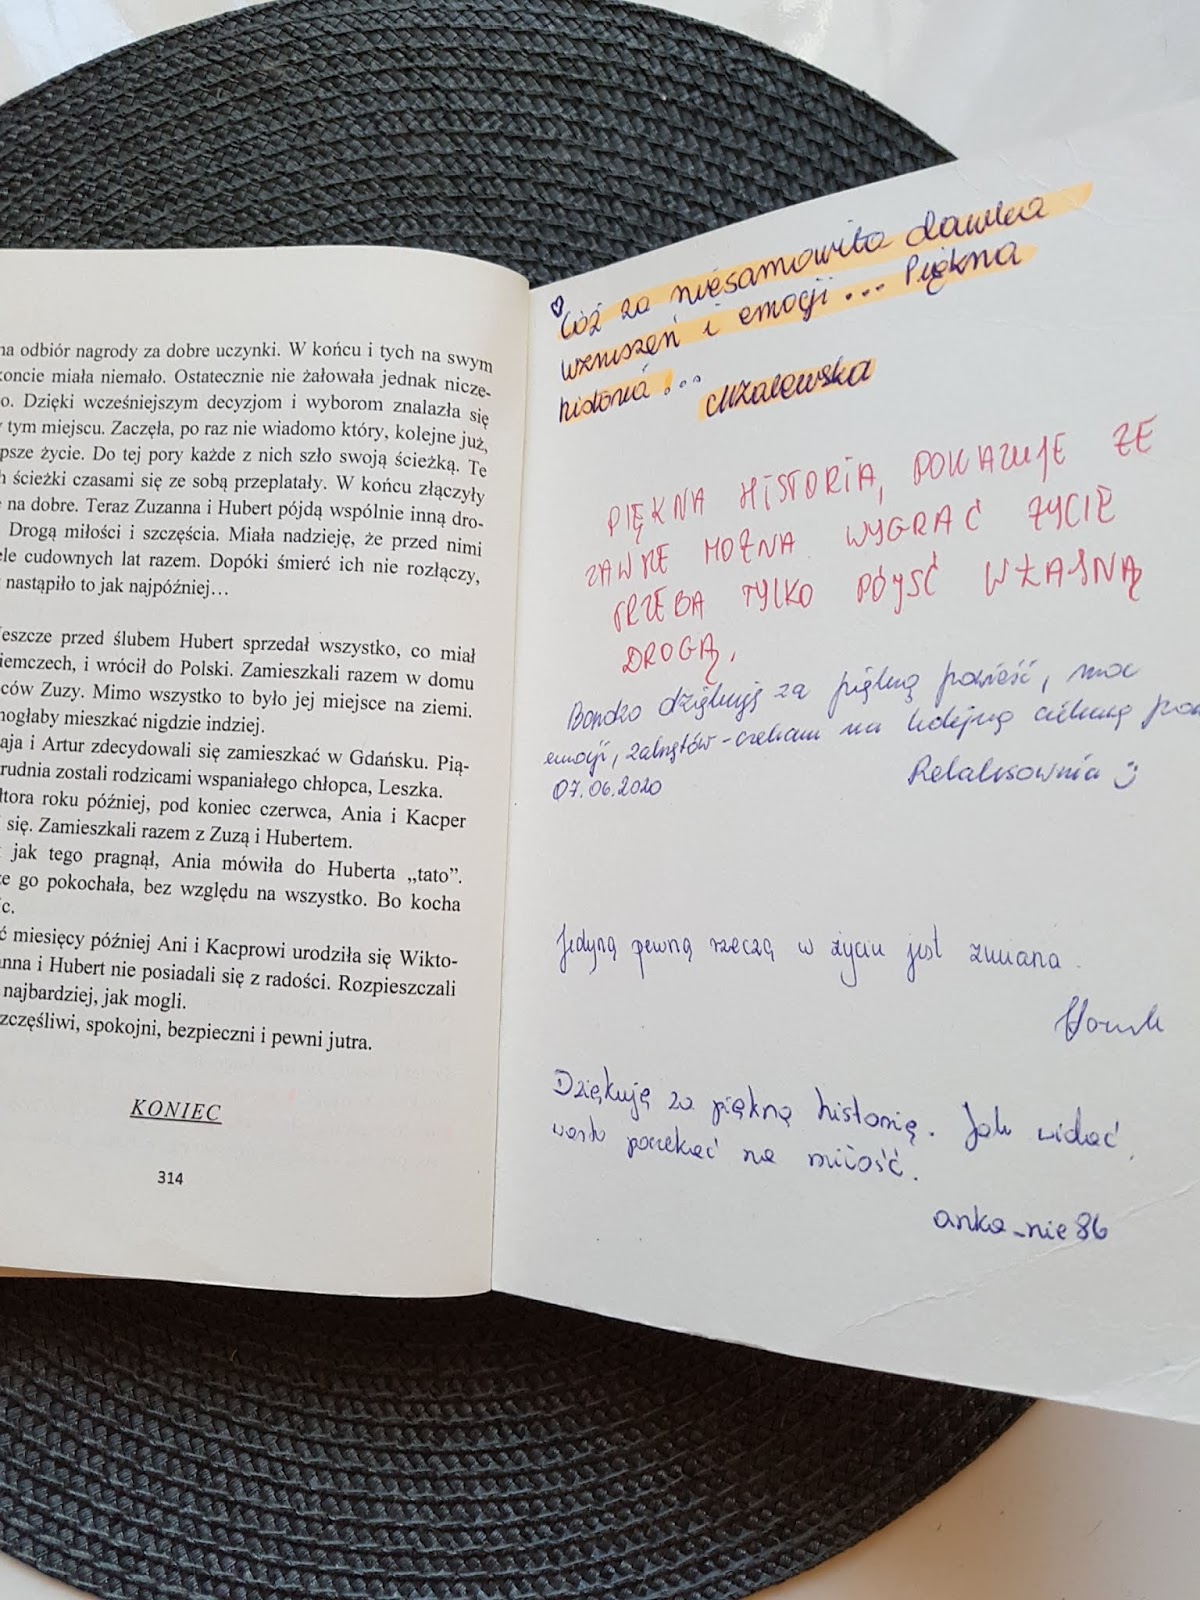 na odbiór nagrody za dobre uczynki. W końcu i tych na swym
koncie miała niemało. Ostatecznie nie żałowała jednak nicze-
o. Dzięki wcześniejszym decyzjom i wyborom znalazła się
tym miejscu. Zaczęła, po raz nie wiadomo który, kolejne już,
psze życie. Do tej pory każde z nich szło swoją ścieżką. Te
h ścieżki czasami się ze sobą przeplatały. W końcu złączyły
na dobre. Teraz Zuzanna i Hubert pójdą wspólnie inną dro-
Drogą miłości i szczęścia. Miała nadzieję, że przed nimi
ele cudownych lat razem. Dopóki śmierć ich nie rozłączy,
nastąpiło to jak najpóźniej…
eszcze przed ślubem Hubert sprzedał wszystko, co miał
iemczech, i wrócił do Polski. Zamieszkali razem w domu
ców Zuzy. Mimo wszystko to było jej miejsce na ziemi.
mogłaby mieszkać nigdzie indziej.
aja i Artur zdecydowali się zamieszkać w Gdańsku. Pią-
rudnia zostali rodzicami wspaniałego chłopca, Leszka.
tora roku później, pod koniec czerwca, Ania i Kacper
się. Zamieszkali razem z Zuzą i Hubertem.
jak tego pragnął, Ania mówiła do Huberta „tato”.
e go pokochała, bez względu na wszystko. Bo kocha
c.
ć miesięcy później Ani i Kacprowi urodziła się Wikto-
anna i Hubert nie posiadali się z radości. Rozpieszczali
najbardziej, jak mogli.
zczęśliwi, spokojni, bezpieczni i pewni jutra.
KONIEC
314
Cóż za niesamowita dawka
wzruszeń i emocji... Piękna
historia...
PIĘKNA HISTORIA, POKAZUJE ŻE
ZAWSZE MOŻNA WYGRAĆ ŻYCIE
TRZEBA TYLKO PÓJŚĆ WŁASNĄ
DROGĄ.
Bardzo dziękuję za piękną powieść, moc
emocji, zakrętów - czekam na kolejną ciekawą pow
07.06.2020 Relaksownia
Jedyną pewną rzeczą w życiu jest zmiana.
Dziękuję za piękną historię. Jak widać,
warto poczekać na miłość.
anka_nie86